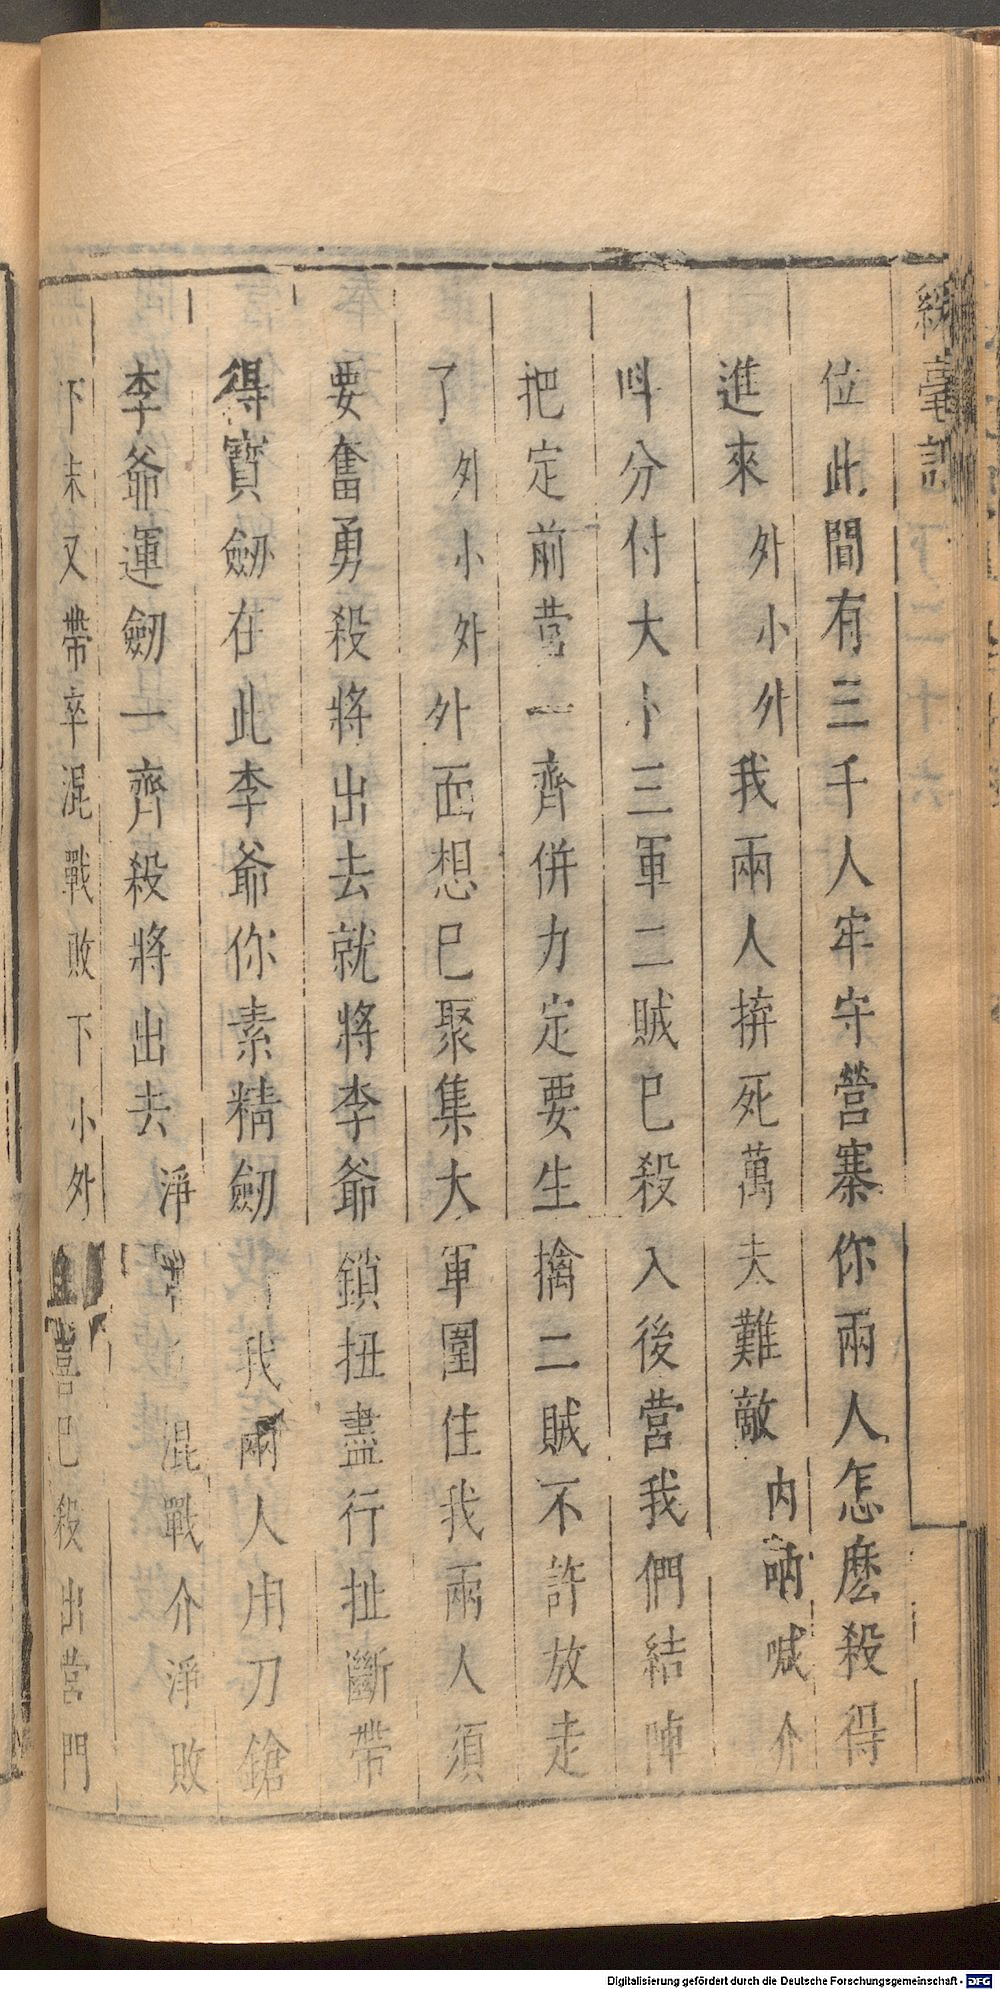 位此間有三千人牢守營寨你兩人怎麽殺得
進來 外小外 我兩人拚死萬夫難敵 内吶喊介
呌分付大小三軍二賊已殺入後營我們結陣
把定前營一齊併力定要生擒二賊不許放走
了 外小外 外面想已聚集大軍圍住我兩人須
要奮勇殺將出去就將李爺鎖扭盡行扯斷帶
得寶劒在此李爺你素精劒 我兩人用刀鎗
李爺運劒一齊殺將出去 淨 混戰介淨敗
下末又帶卒混戰敗下 小外 喜已殺出營門
Digitalisierung gefördert durch die Deutsche Forschungsgemeinschaft - DFG